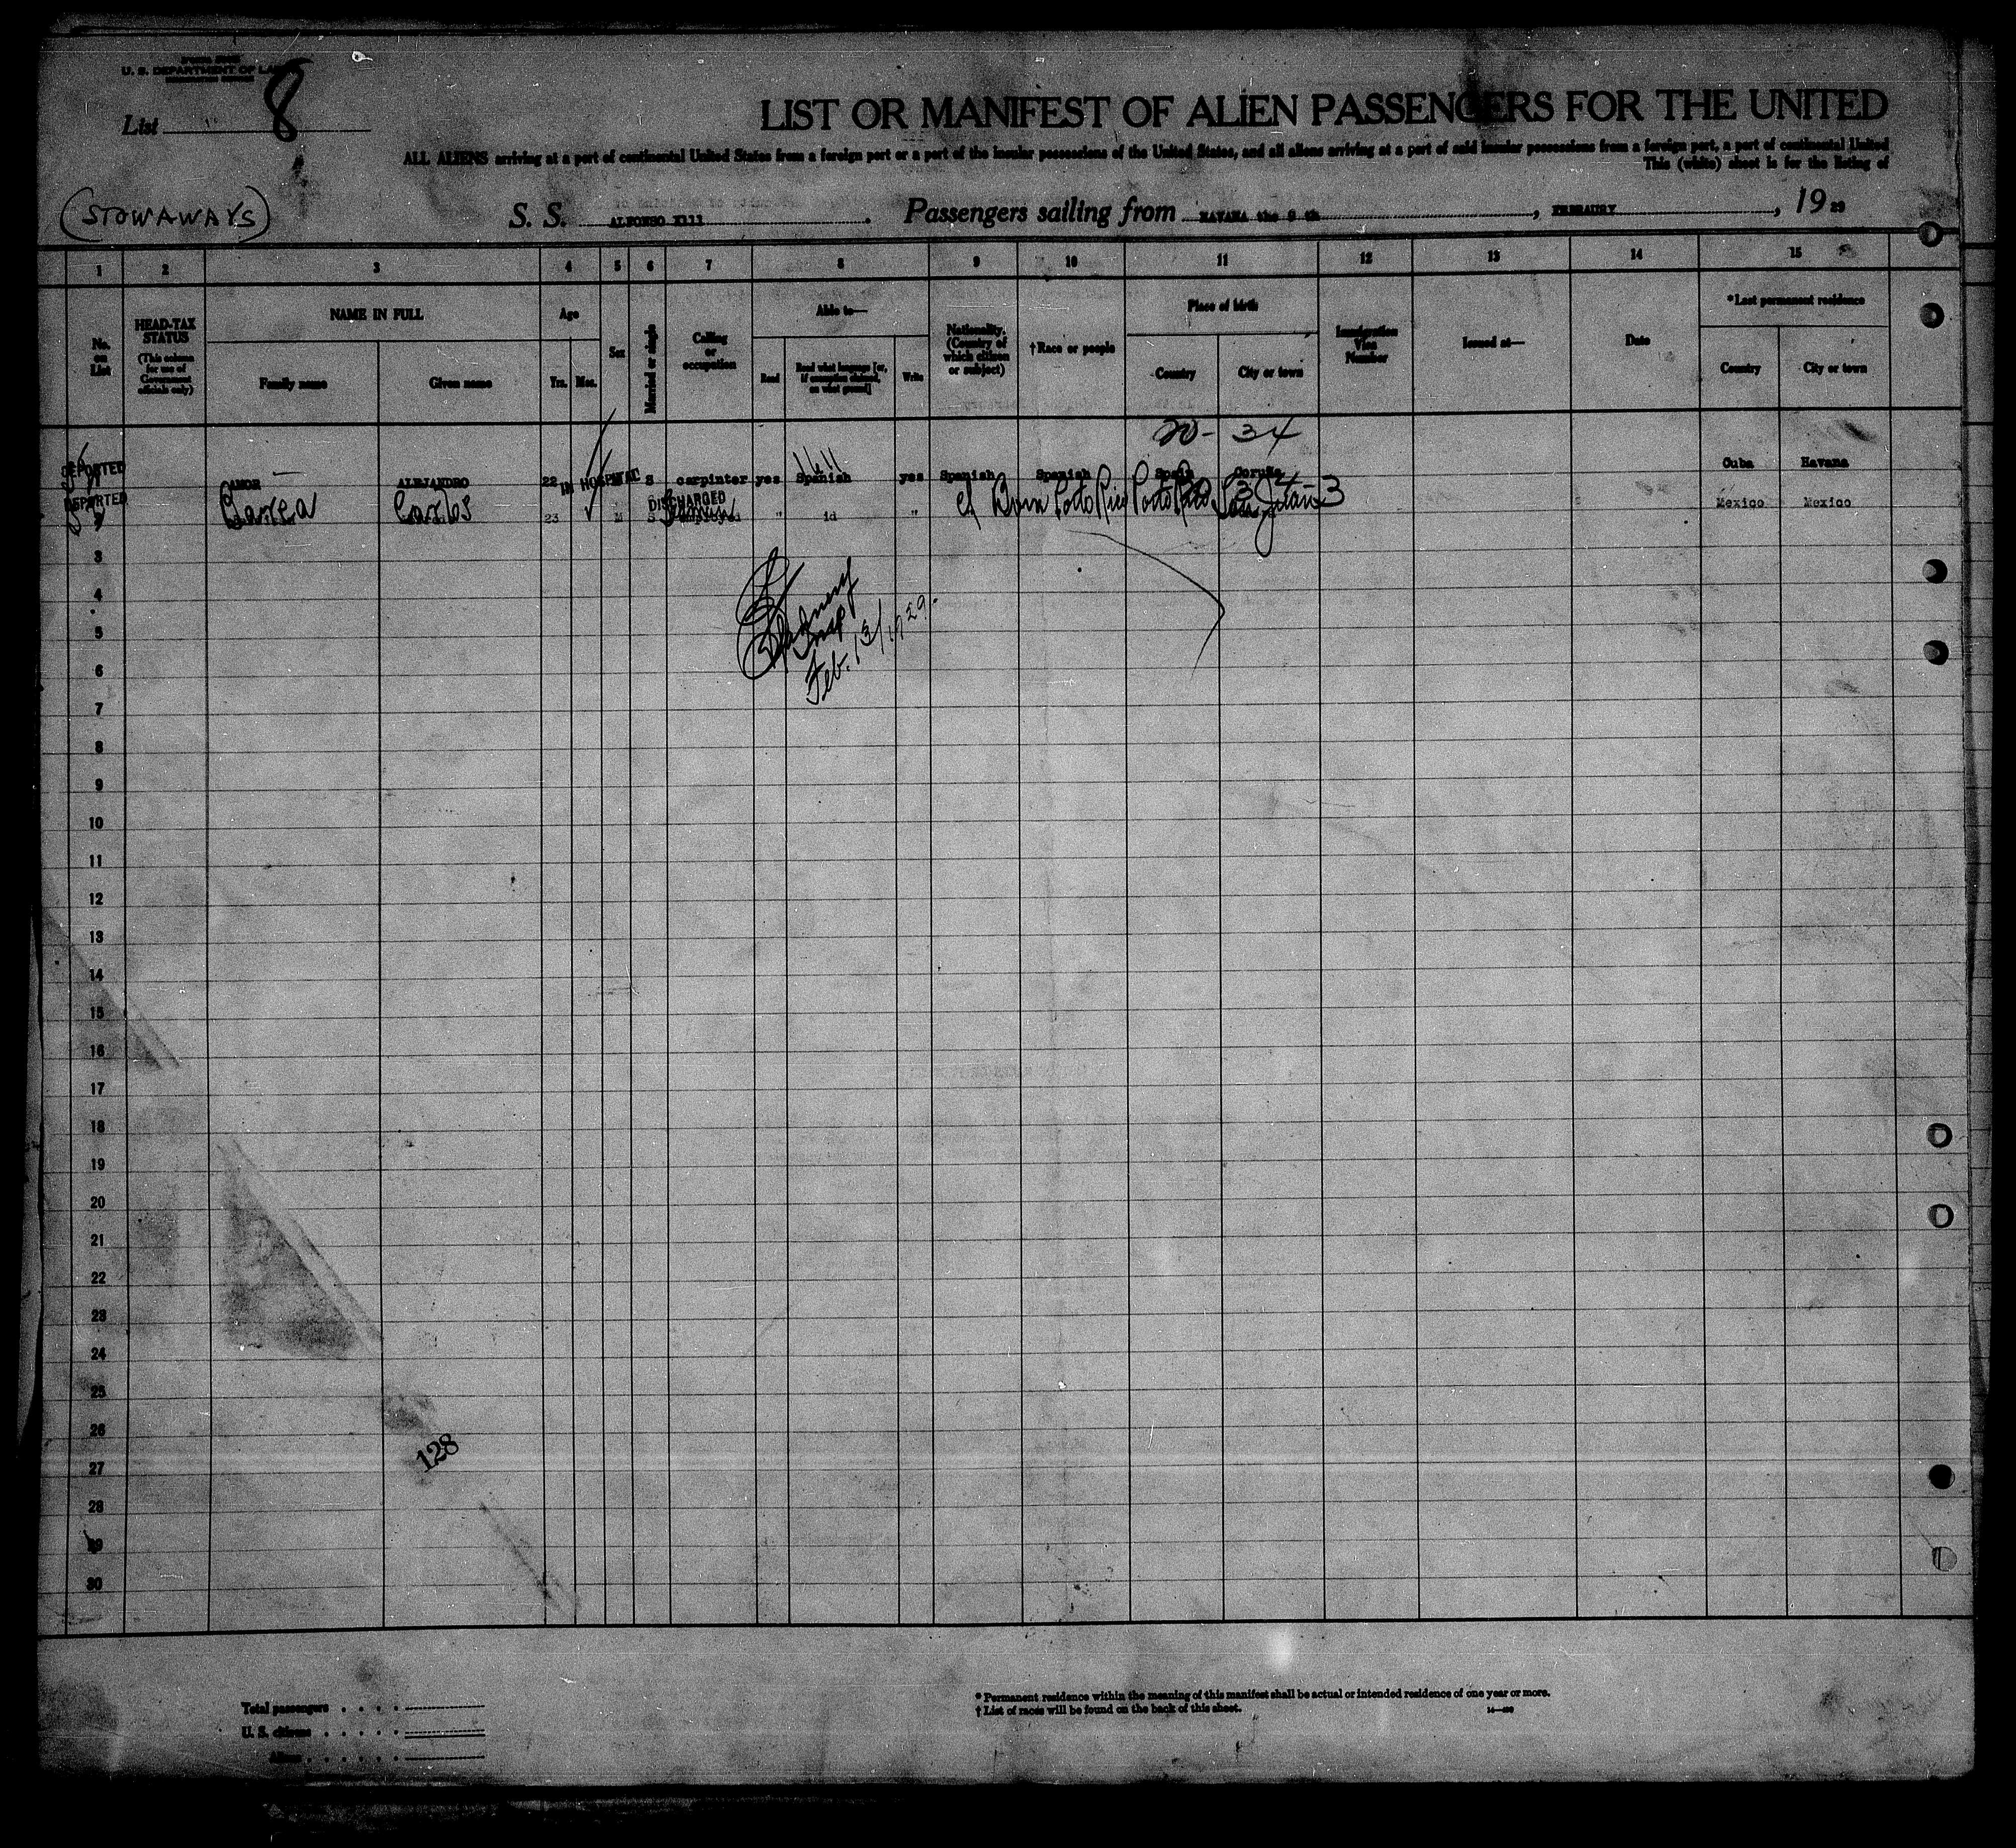 U. S. DEPARTMENT OF LABOR
List 8
LIST OR MANIFEST OF ALIEN PASSENGERS FOR THE UNITED
ALL ALIENS arriving at a port of continental United States from a foreign port or a port of the insular possessions of the United States, and all aliens arriving at a port of said insular possessions from a foreign port, a port of continental United
This (white) sheet is for the listing of
(STOWAWAYS)
S. S. ALFONSO XIII. Passengers sailing from HAVANA the 9 th, FEBRAURY, 19 29
1 2 3 4 5 6 7 8 9 10 11 12 13 14 15
No. on List
HEAD-TAX STATUS
(This column for use of Government officials only)
NAME IN FULL
Family name
Given name
Age
Yrs.
Mos.
Sex
Married or single
Calling or occupation
Able to—
Read
Read what language [or, if exemption claimed, on what ground]
Write
Nationality. (Country of which citizen or subject)
†Race or people
Place of birth
Country
City or town
Immigration Visa Number
Issued at—
Date
*Last permanent residence
Country
City or town
20- 34
DEPORTED AMOR ALEJANDRO 22 IN HOSPITAL S carpinter yes Spanish yes Spanish Spanish Spain Coruña Cuba Havana
DEPORTED Carlos DISCHARGED
23 M S " id " Born Porto Rico Porto Rico San Juan Mexico Mexico
3
4
5
Insp
Feb. 13/1929.
6
7
8
9
10
11
12
13
14
15
16
17
18
19
20
21
22
23
24
25
26
128
27
28
29
30
Total passengers
U. S. citizens
Aliens
* Permanent residence within the meaning of this manifest shall be actual or intended residence of one year or more.
† List of races will be found on the back of this sheet.